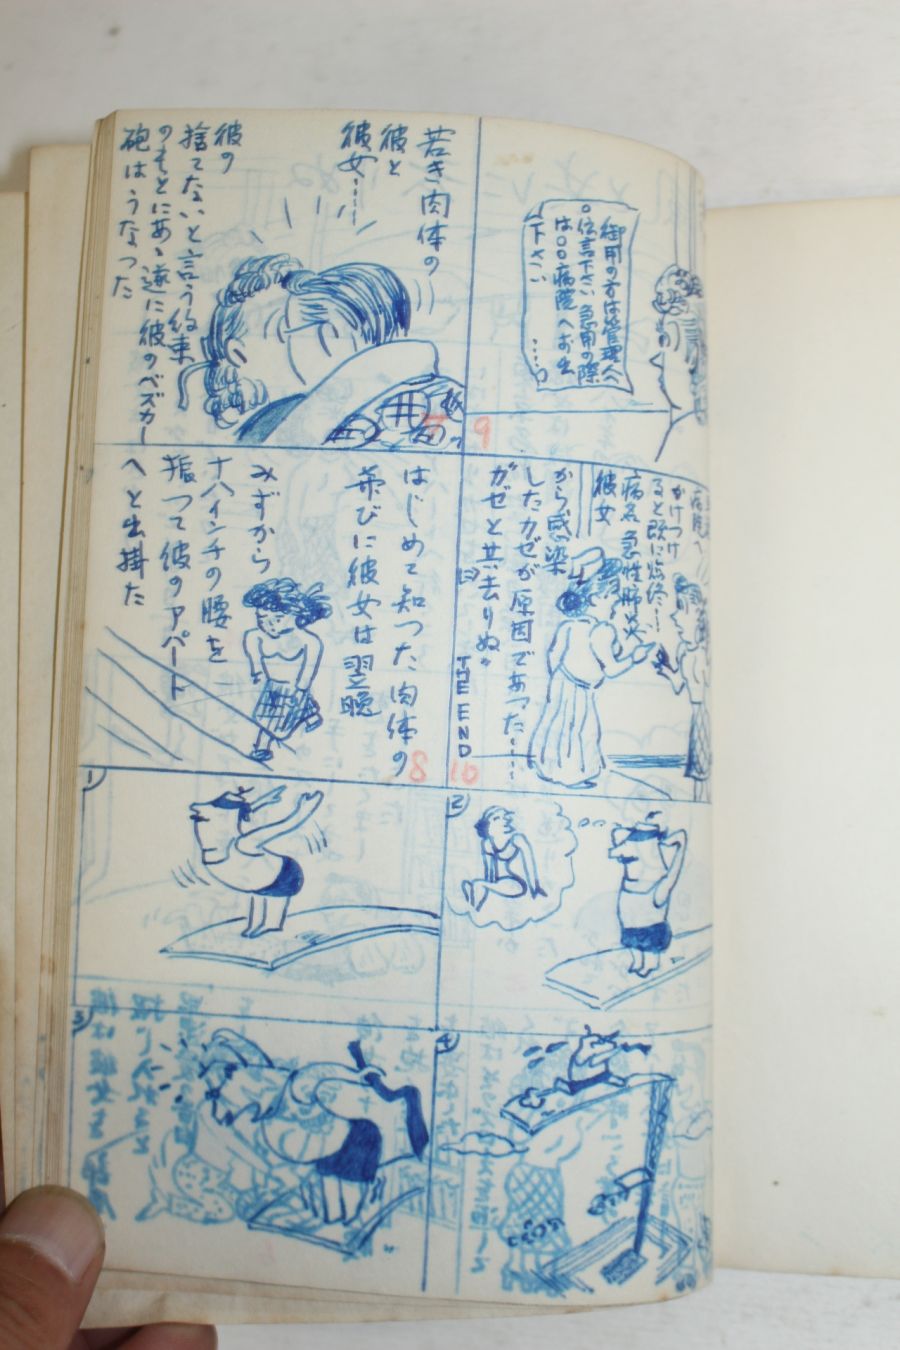 若き肉体の
彼と
彼女……
彼の
捨てないと言う約束
のもとにあゝ遂に彼のベズカー
砲はうなった
7
はじめて知った肉体の
喜びに彼女は翌晩
みずから
十八インチの腰を
振って彼のアパート
へと出掛た
8
御用の方は管理人へ
伝言下さい急用の際
は〇〇病院へお出
下さい
……。
9
病院へ
かけつけ
ると既に臨終……
病名急性肺炎
彼女
から感染
したカゼが原因であった……
ガゼと共に去りぬ〃
THE END
10
1
2
3
4